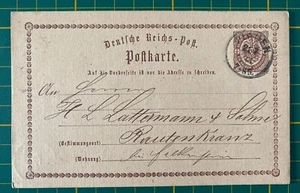 Deutsche Reichs-Post.
Postkarte.
Auf die Vorderseite ist nur die Adresse zu schreiben.
An Herrn
H L Lattermann & Söhne
(Bestimmungsort) Rautenkranz
(Wohnung) bei